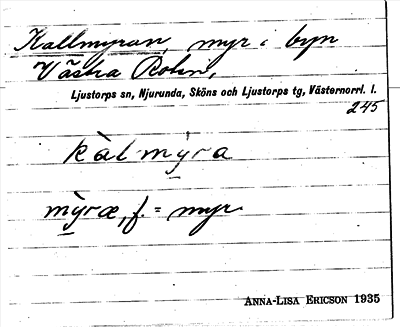 Kallmyran, myr i byn
Västra Rolen,
Ljustorps sn, Njurunda, Sköns och Ljustorps tg, Västernorrl. l.
245
kàlmỳra
mỳræ, f. = myr
ANNA-LISA ERICSON 1935